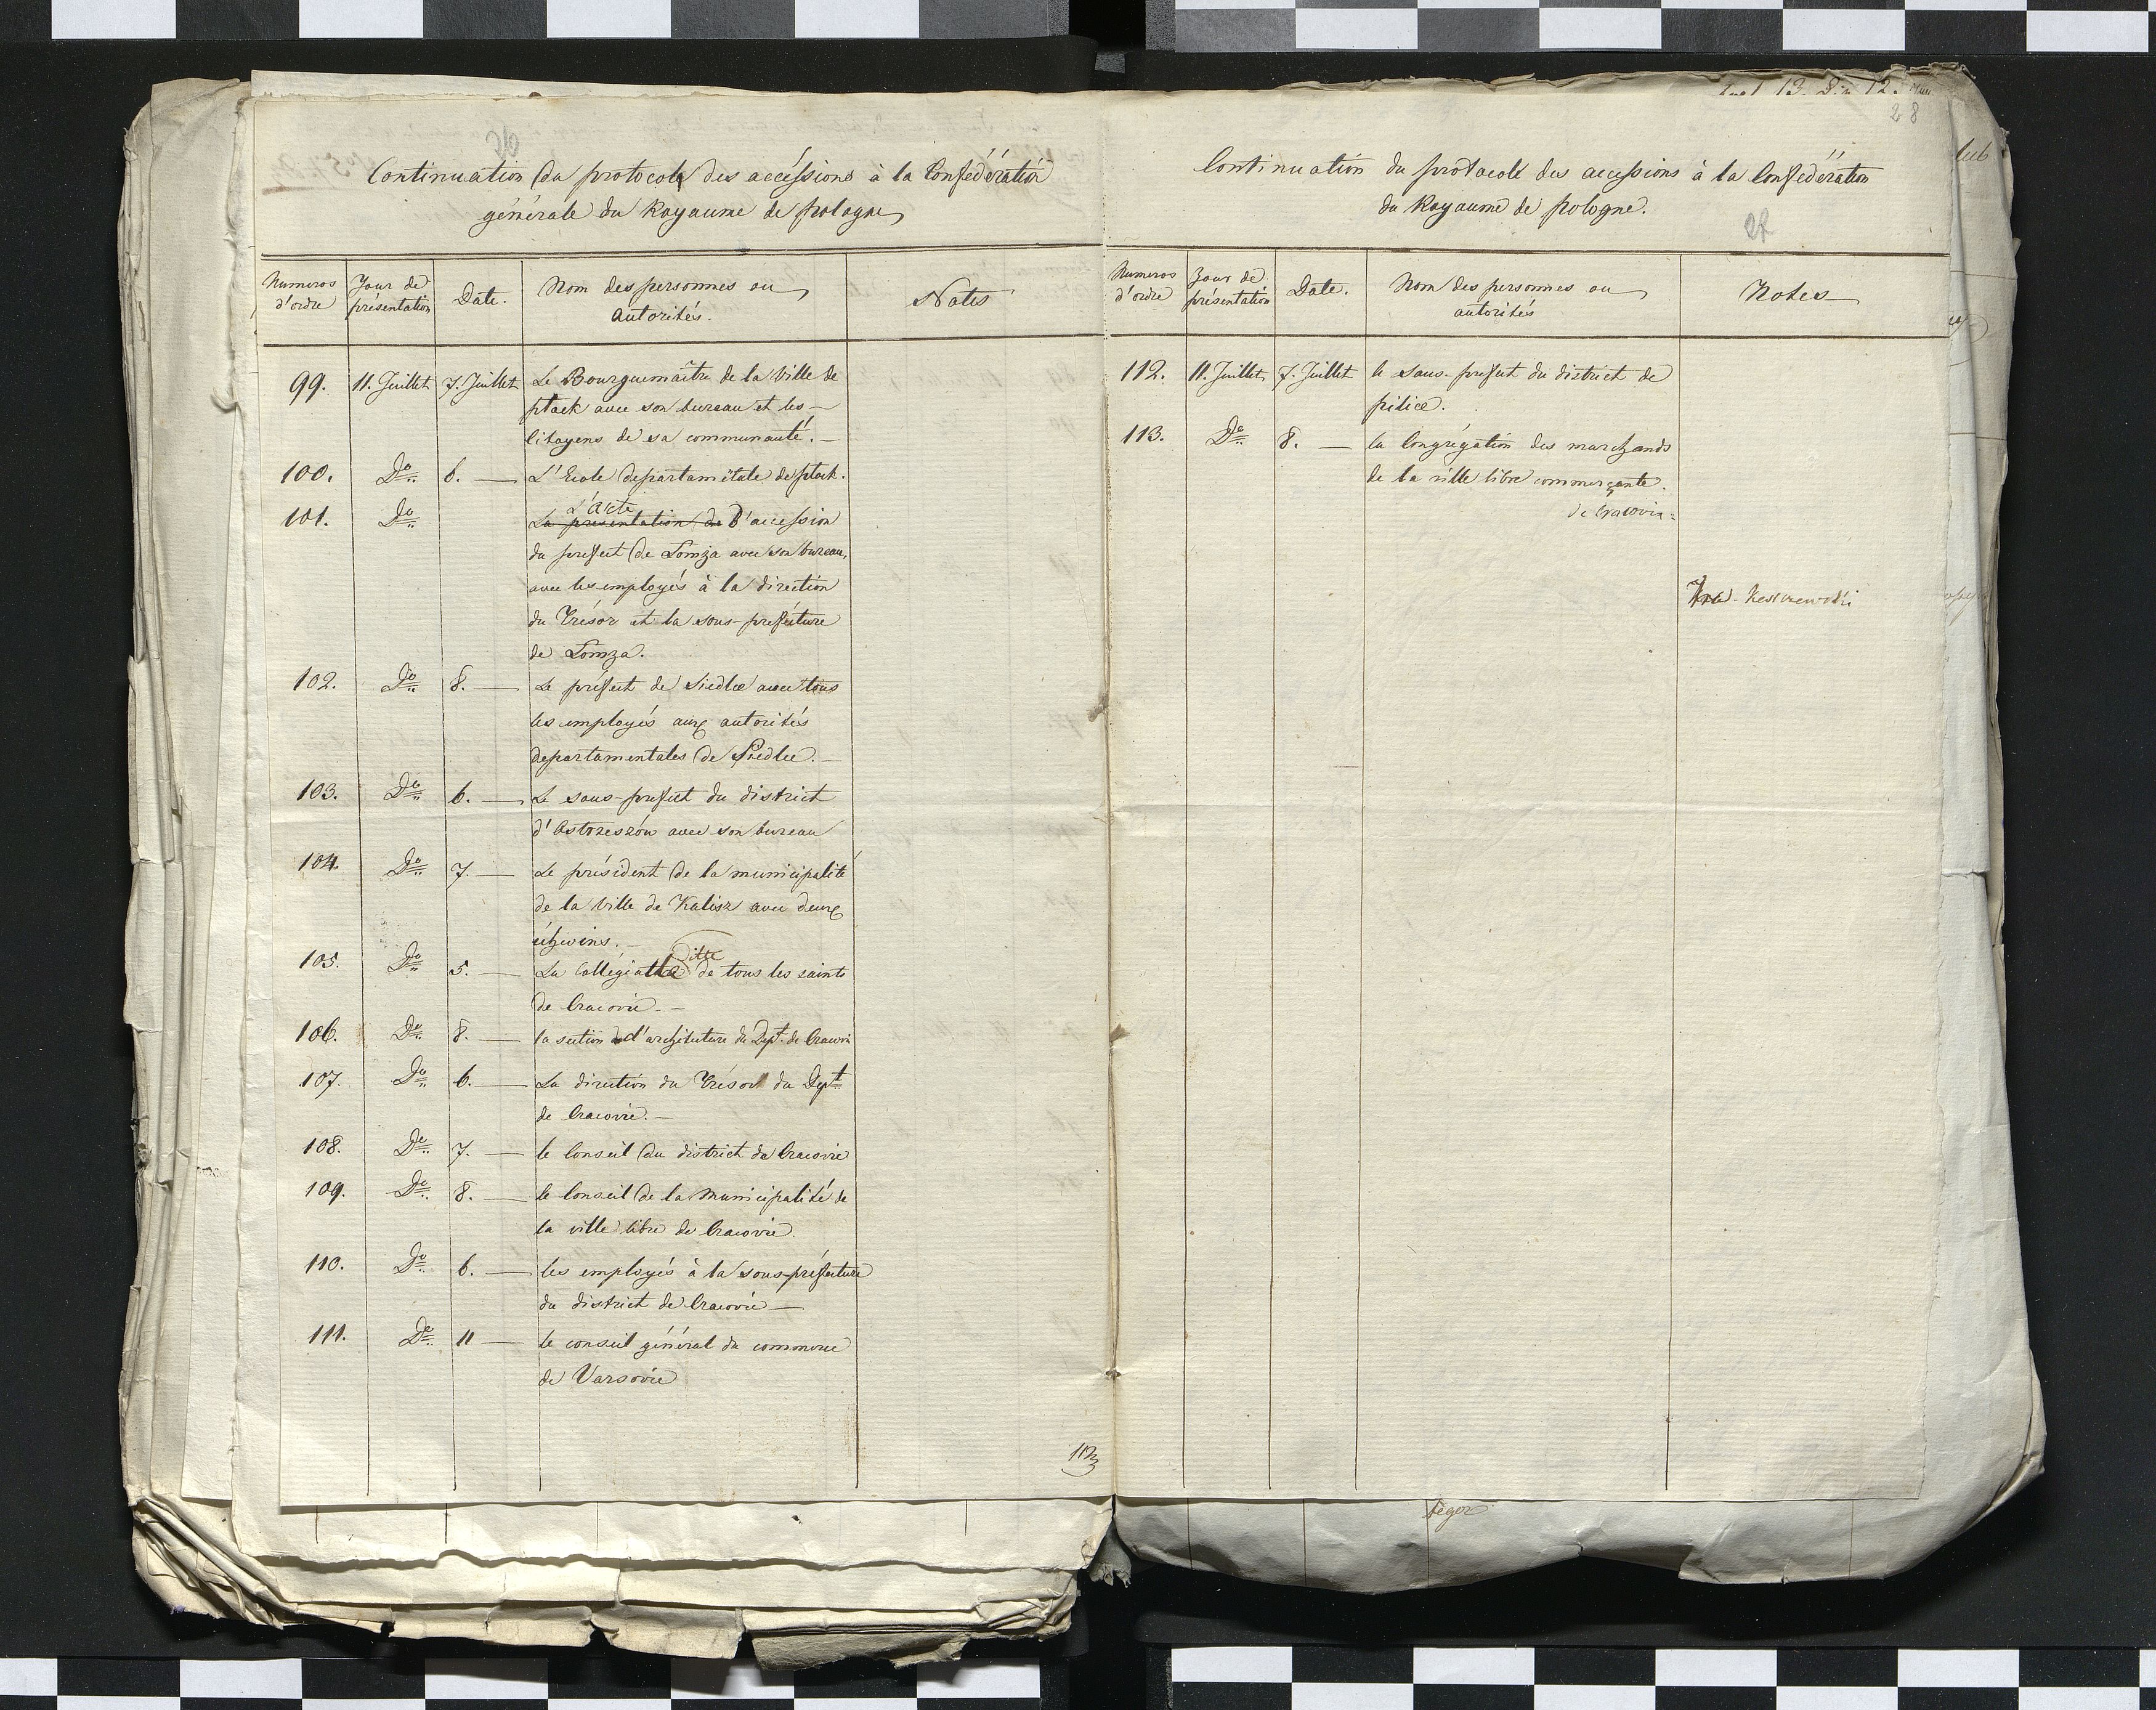 Continuation du protocole des accessions à la Confédération
générale du Royaume de pologne
Numeros d'ordre
Jour de présentation
Date.
Nom des personnes ou autorités.
Notes
99. 11. Juillet 7. Juillet Le Bourguemaitre de la Ville de
plock avec son bureau et les —
Citoyens de sa communauté. —
100. Do 6. — L'Ecole departamétale de plock.
L'Acte
101. Do La présentation de l'accession
du prefect de Lomza avec son bureau,
avec les employés à la direction
du Trésor et la sous-prefecture
de Lomza.
102. Do 8. — Le préfect de Siedlce avec tous
les employés aux autorités
departamentales de Siedlce. —
103. Do 6. — Le sous-prefect du district
d'Ostrzeszów avec son bureau
104. Do 7. — Le président de la municipalité
de la Ville de Kalisz avec deux
échevins. —
ditte
105. Do 5. — La Collégiatte de tous les saints
de Cracovie. —
106. Do 8. — la section d'architecture du Dept. de Cracovie
107. Do 6. — La direction du Trésor du Dept
de Cracovie. —
108. Do 7. — le Conseil du district de Cracovie
109. Do 8. — le Conseil de la Municipalité de
la ville libre de Cracovie.
110. Do 6. — les employés à la sous-préfecture
du district de Cracovie —
111. Do 11 — le conseil général du commerce
de Varsovie
113
28
Continuation du protocole des accessions à la Confédération
du Royaume de pologne.
27
Numeros d'ordre
Jour de présentation
Date.
Nom des personnes ou autorités
Notes
112. 11. Juillet 7. Juillet le sous-prefect du district de
pilice.
113. Do 8. — la Congrégation des marchands
de la ville libre commerçante.
de Cracovie